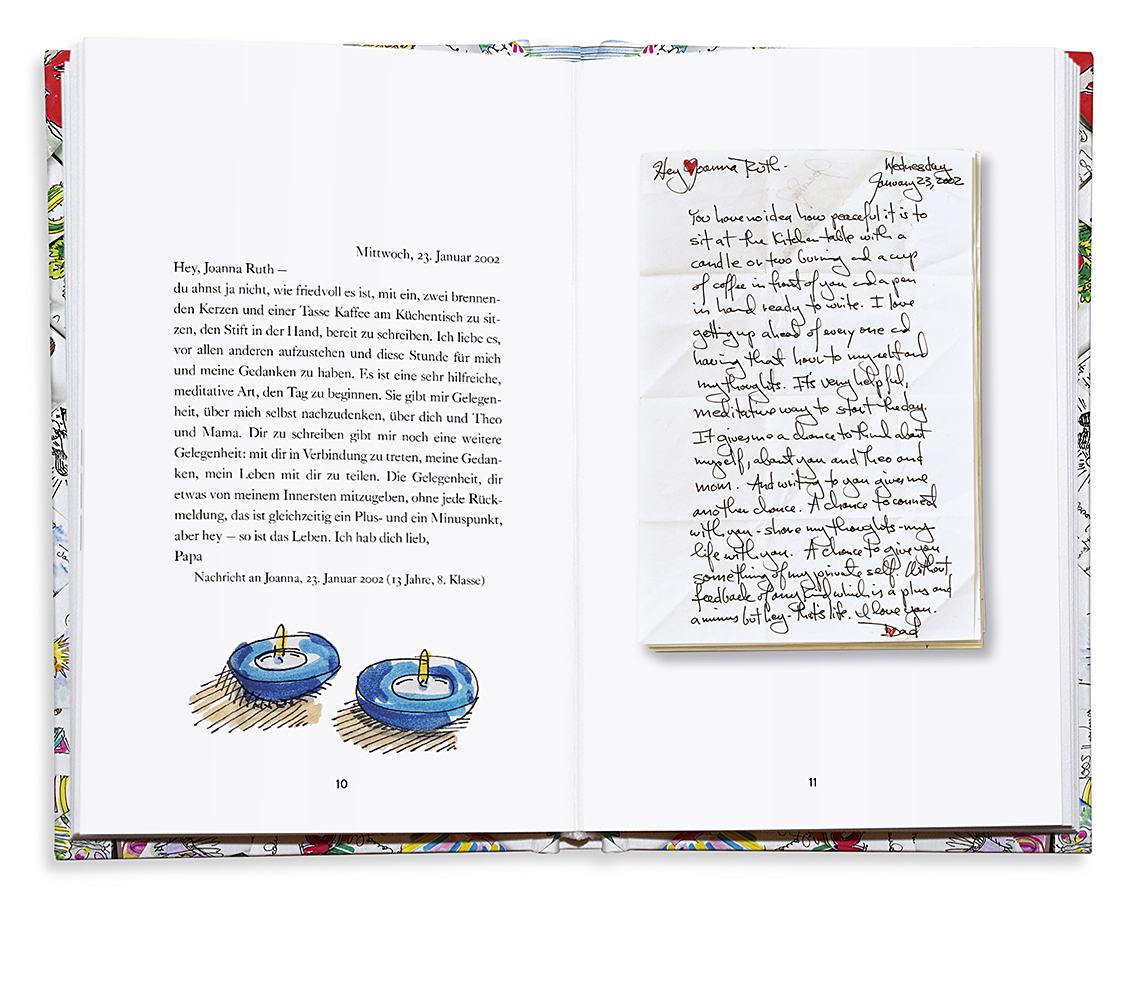 Mittwoch, 23. Januar 2002
Hey, Joanna Ruth –
du ahnst ja nicht, wie friedvoll es ist, mit ein, zwei brennen-
den Kerzen und einer Tasse Kaffee am Küchentisch zu sit-
zen, den Stift in der Hand, bereit zu schreiben. Ich liebe es,
vor allen anderen aufzustehen und diese Stunde für mich
und meine Gedanken zu haben. Es ist eine sehr hilfreiche,
meditative Art, den Tag zu beginnen. Sie gibt mir Gelegen-
heit, über mich selbst nachzudenken, über dich und Theo
und Mama. Dir zu schreiben gibt mir noch eine weitere
Gelegenheit: mit dir in Verbindung zu treten, meine Gedan-
ken, mein Leben mit dir zu teilen. Die Gelegenheit, dir
etwas von meinem Innersten mitzugeben, ohne jede Rück-
meldung, das ist gleichzeitig ein Plus- und ein Minuspunkt,
aber hey – so ist das Leben. Ich hab dich lieb,
Papa
Nachricht an Joanna, 23. Januar 2002 (13 Jahre, 8. Klasse)
10
Hey Joanna Ruth -
Wednesday
January 23, 2002
You have no idea how peaceful it is to
sit at the kitchen table with a
candle or two burning and a cup
of coffee in front of you and a pen
in hand ready to write. I love
getting up ahead of every one and
having that hour to myself and
my thoughts. It's very helpful,
meditative way to start the day.
It gives me a chance to think about
myself, about you and Theo and
mom. And writing to you gives me
another chance. A chance to connect
with you - share my thoughts - my
life with you. A chance to give you
something of my private self. Without
feedback of any kind which is a plus and
a minus but hey - that's life. I love you.
Dad
11